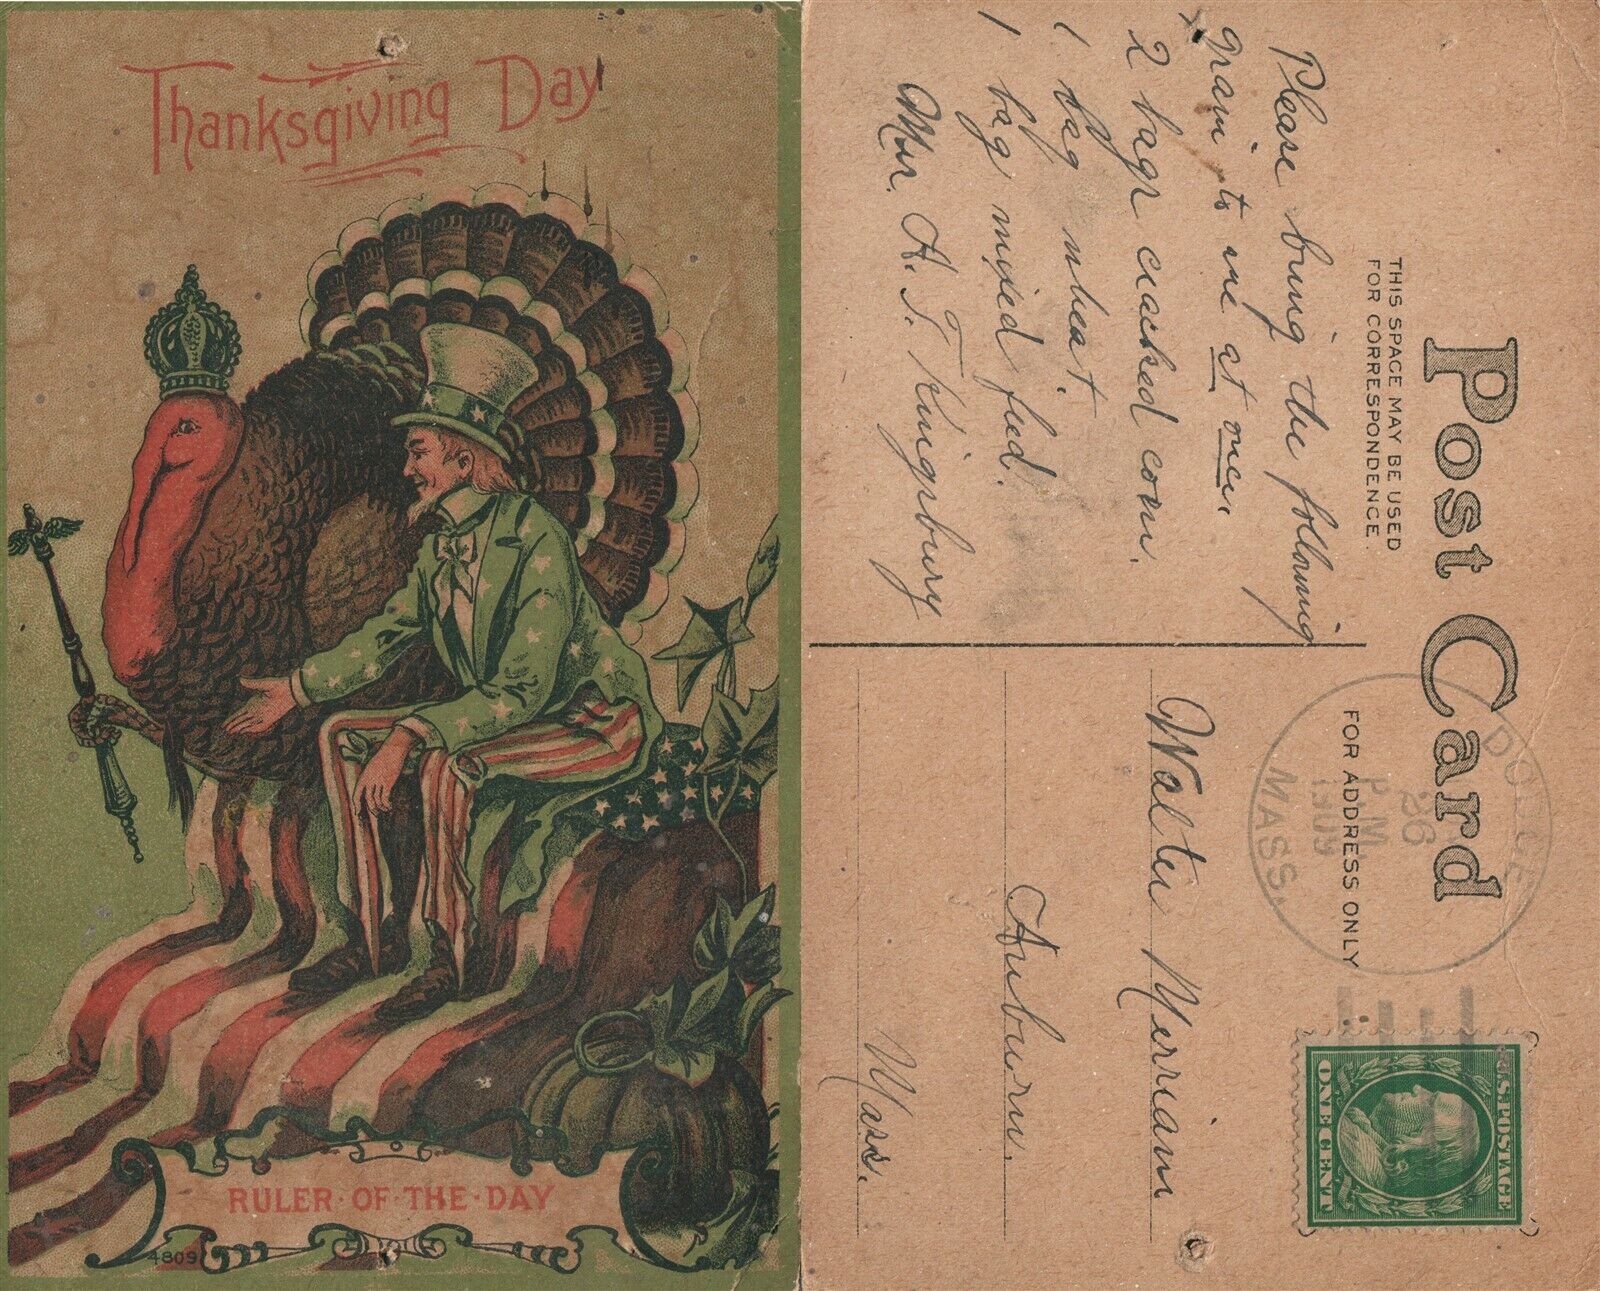 Thanksgiving Day
RULER·OF·THE·DAY
4809
Post Card
THIS SPACE MAY BE USED
FOR CORRESPONDENCE.
FOR ADDRESS ONLY
Please bring the following
grain to me at once.
2 bags cracked corn.
1 bag wheat.
1 bag mixed feed.
Mrs. H. T. Kingsbury
DODGE,
26
P.M.
1909
MASS.
U.S. POSTAGE
ONE CENT
Walter Merriam
Auburn.
Mass.